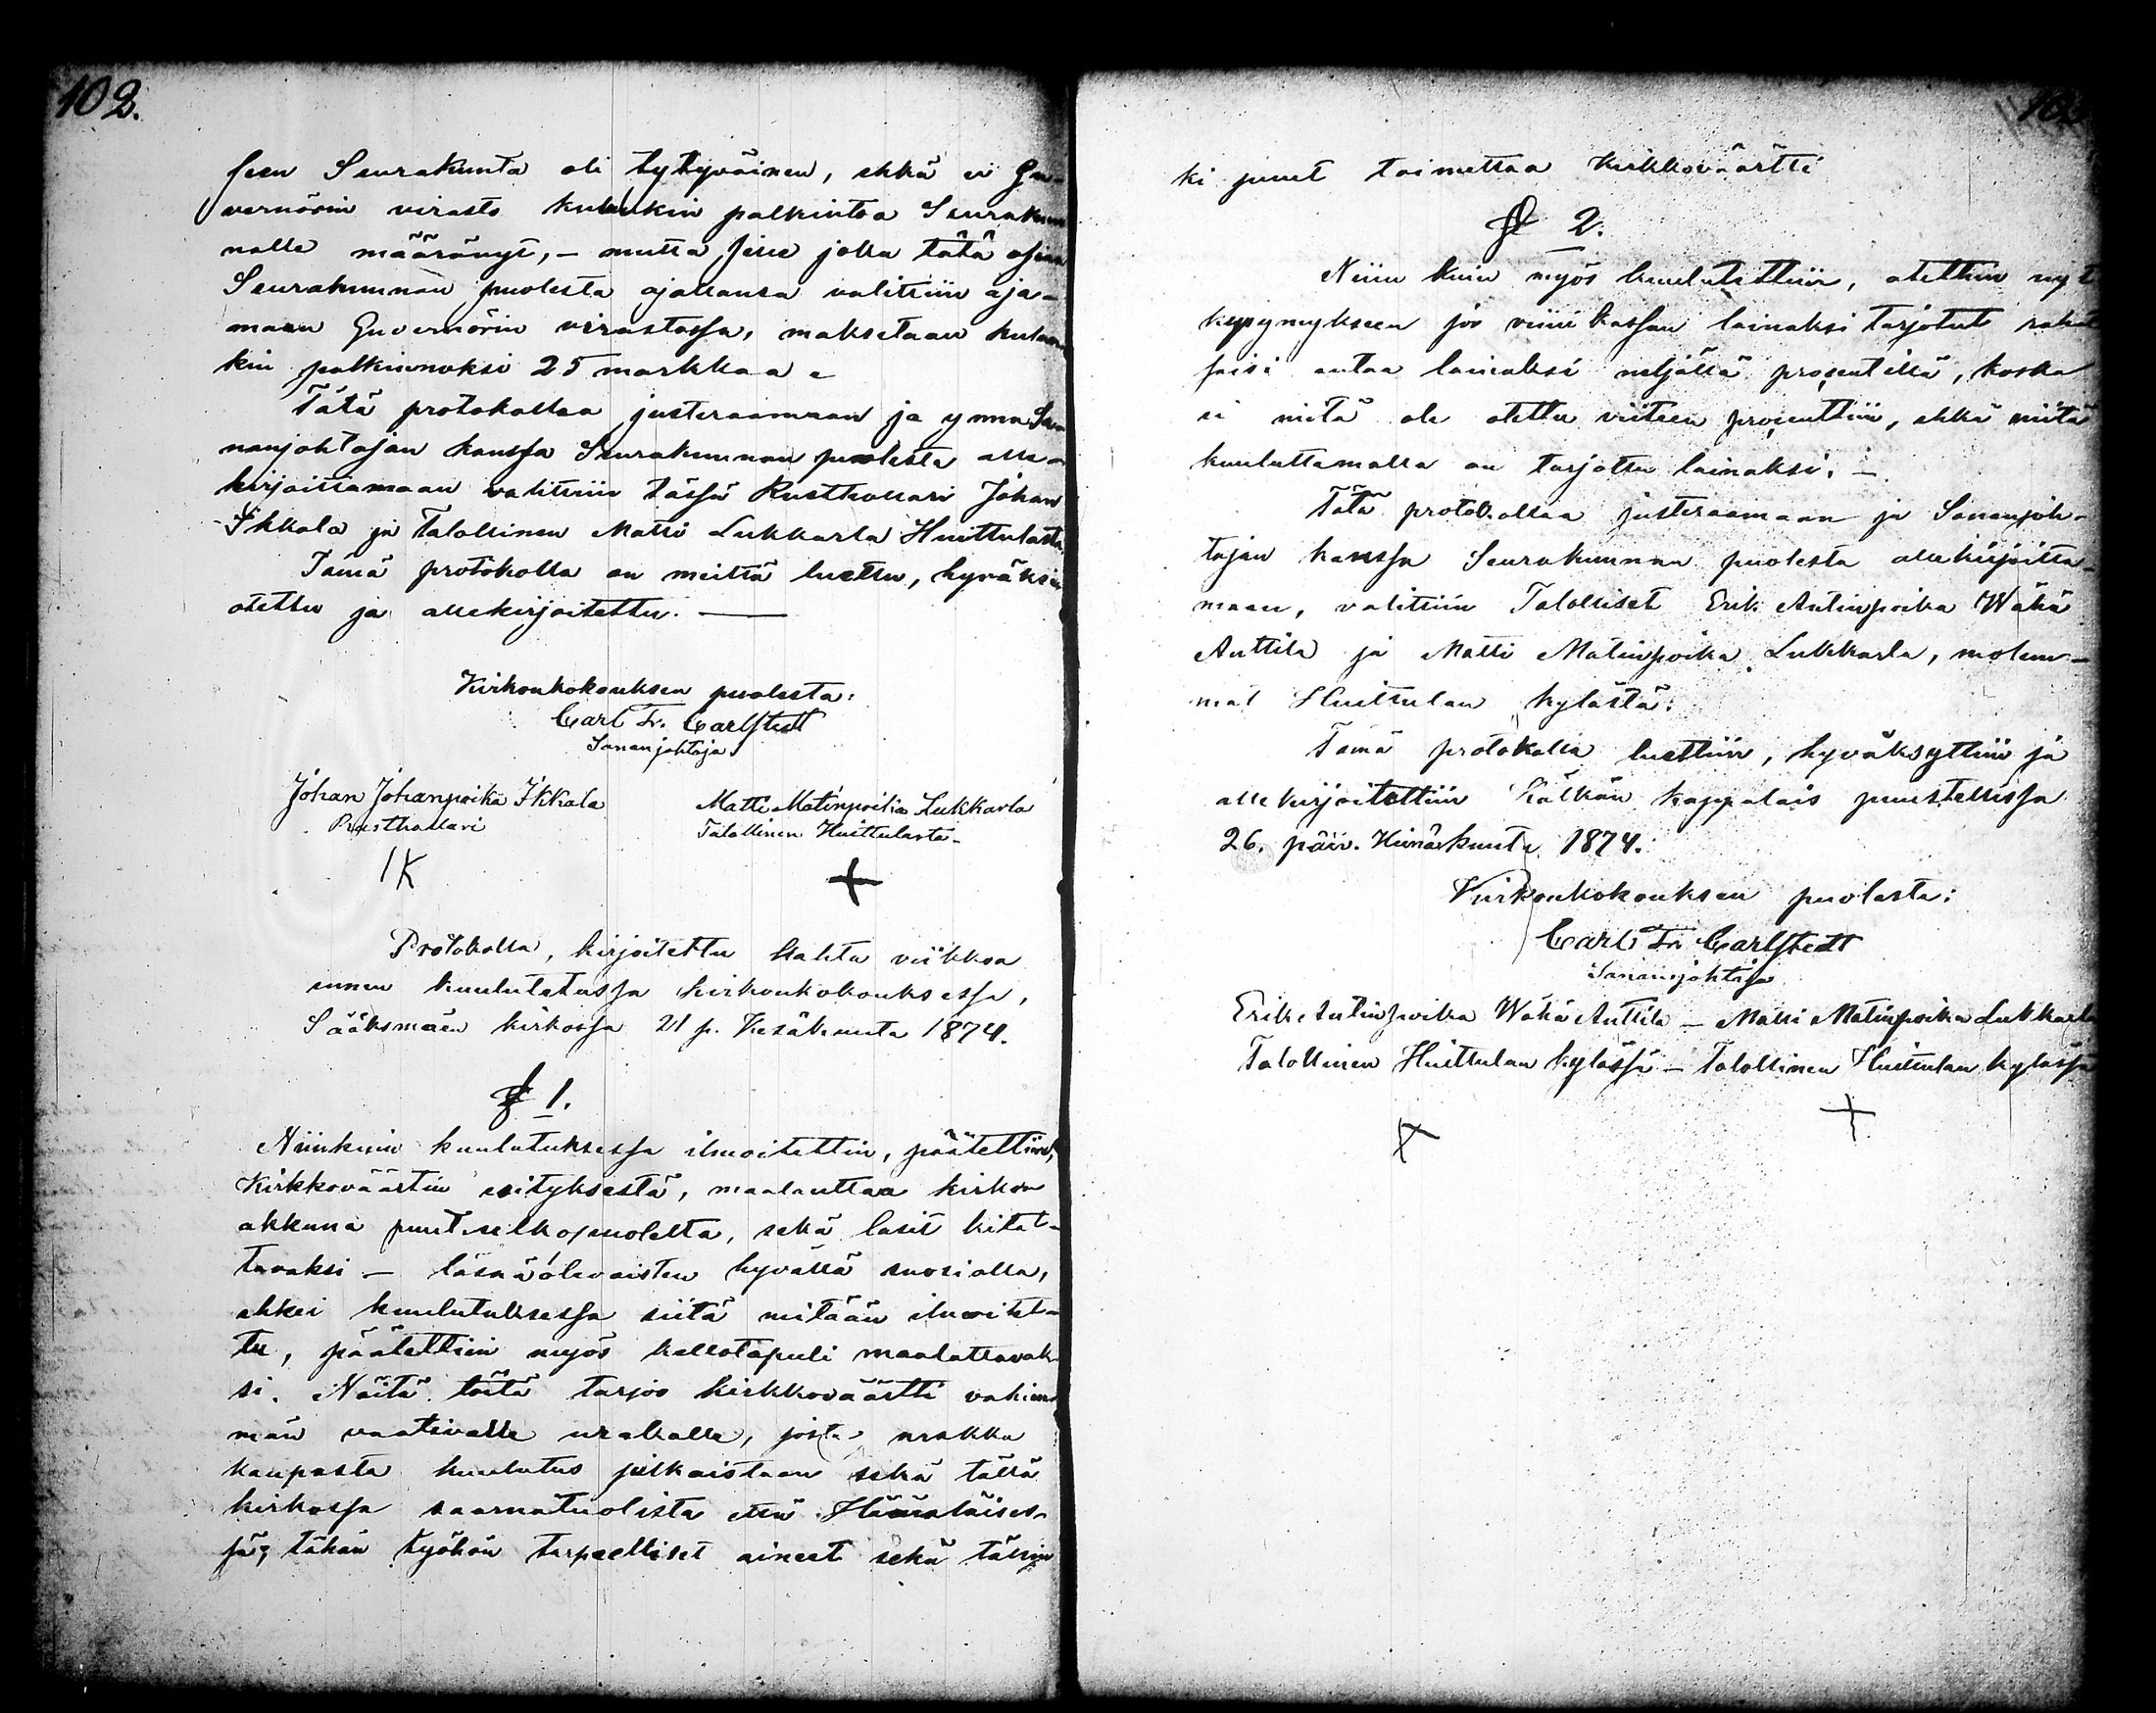 102.
seen Seurakunta oli tytyväinen, ehkä ei Gu-
vernörin virasto kutenkin palkintoa Seurakun
nalle määränyt, – mutta sille jolla tätä asiaa
Seurakunnan puolesta ajallansa valittiin aja-
maan Guvernörin virastossa, maksetaan kuten-
kin palkinnoksi 25 markkaa.
Tätä protokollaa justeraamaan ja ynnä Sa-
nanjohtajan kanssa Seurakunnan puolesta alle-
kirjoittamaan valittiin tässä Rusthollari Johan
Ikkala ja Talollinen Matti Lukkarla Huittulasta
Tämä protokolla on meiltä luettu, hyväksi
otettu ja allekirjoitettu. —
Kirkonkokouksen puolesta:
Carl Fr. Carlstedt
Sananjohtaja
Johan Johanpoika Ikkala Matti Matinpoika Lukkarla
Rusthollari Talollinen Huittulasta-
IK +
Protokolla, kirjoitettu kahta viikkoa
ennen kuulutetussa kirkonkokouksessa,
Sääksmäen kirkossa 21 p. Kesäkuuta 1874.
§ 1.
Niinkuin kuulutuksessa ilmoitettiin, päätettiin,
Kirkkoväärtin esityksestä, maalauttaa kirkon
akkuna puut selkopuolelta, sekä lasit kitat-
tavaksi – läsnäolevaisten hyvällä suosiolla,
ehkei kuulutuksessa siitä mitään ilmoitet-
tu, päätettiin myös kellotapuli maalattavak-
si. Näitä töitä tarjoo kirkkoväärtti vähim-
män vaativalle urakalle, josta urakka
kaupasta kuulutus julkaistaan sekä tällä
kirkossa saarnatuolista että Hämäläises-
sä; tähän työhön tarpeelliset aineet sekä
ki puut toimettaa Kirkkoväärtti
§ 2.
Niin kuin myös kuulutettiin, otettiin nyt
kysymykseen jos viini kassan lainaksi tarjotut rahat
saisi antaa lainaksi neljällä prosentillä, koska
ei niitä ole otettu viiteen prosenttiin, ehkä niitä
kuuluttamalla on tarjottu lainaksi. –
Tätä protokollaa justeraamaan ja Sananjoh-
tajan kanssa Seurakunnan puolesta allekirjoitta-
maan, valittiin Talolliset Erik Antinpoika Wähä
Anttila ja Matti Matinpoika Lukkarla, molem-
mat Huittulan kylästä.
Tämä protokolla luettiin, hyväksyttiin ja
allekirjoitettiin Kälkän kappalais puustellissa
26. päiv. Heinäkuuta 1874.
Kirkonkokouksen puolesta:
Carl Fr. Carlstedt
Sananjohtaja
Erik Antinpoika Wähä Anttila – Matti Matinpoika Lukkarla
Talollinen Huittulan kylässä – Talollinen Huittulan kylässä
+ +